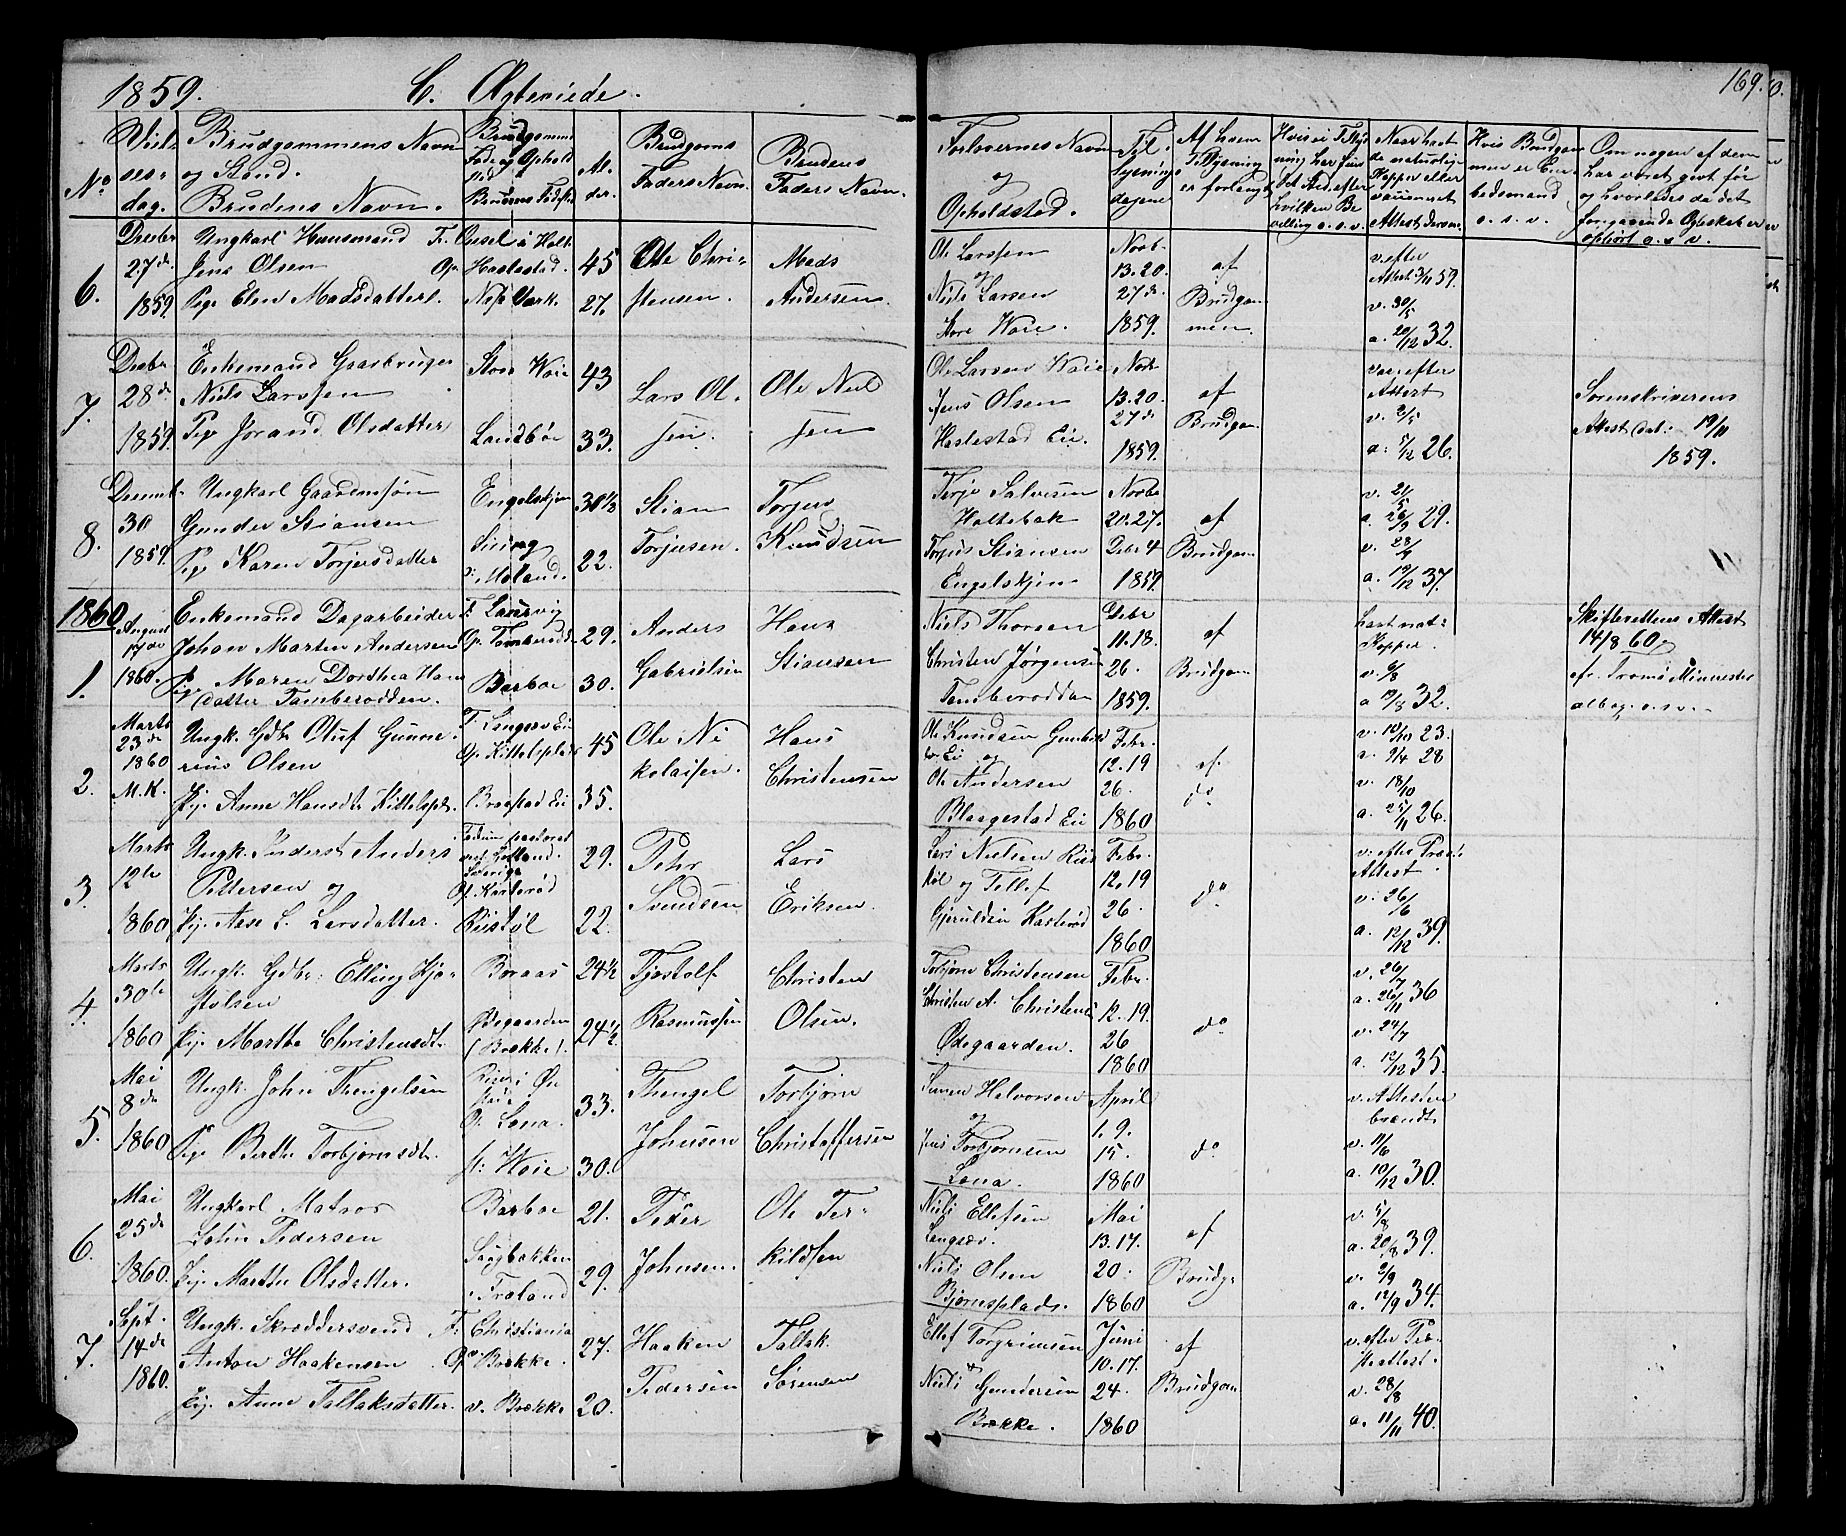 1859. C. Ægteviede. 169.
No
Viel-
ses-
dag.
Brudgommens Navn
og Stand.
Brudens Navn.
Brudgommens
Føde og Ophold
sted
Brudens Fødest
Al-
der.
Brudgoms
Faders Navn.
Brudens
Faders Navn.
Forloverens Navn
og
Opholdsted.
Til-
lysnings
dagene
Af hvem
Tillysning
er forlangt
Hvis ei Tillys
ning har fun
det Sted, efter
hvilken Be
villing o.s.v.
Naar havt
de naturlige
Kopper eller
vaccineret
Attest derom.
Hvis Brudgom
men er Enr
bedsmand
o. s. v.
Om nogen af dem
har været givt før
og hvorledes da det
foregaaende Ægteskab er
ophørt o. s. v.
6.
Decbr
27de
1859
Ungkarl Huusmand
Jens Olsen
Pige Elen Madsdatter
F. Ousel i Holt
Op. Haslestad.
Næs Værk.
45
27.
Ole Chri-
stensen.
Mads
Andersen.
Ole Larssen
og
Niels Larsen
Store Waie.
Novb.
13. 20.
27de
1859.
af
Brudgom
men.
v. efter
Attest 3/11 59.
v. 30/5
a. 20/12 32.
7.
Decbr
28de
1859.
Enkemand Gaardbruger
Niels Larssen
Pige Jorand Olsdatter
Store Waie
Landbøe
43
33.
Lars Ol-
sen.
Ole Niel
sen
Ole Larsen Waie
Jens Olsen
Haslestad Ei.
Novb.
13. 20.
27de
1859.
af
Brudgom.
vac. efter
Attest
v. 2/5
a. 5/12 26.
Sorenskriverens
Attest dat. 19/11
1859.
8.
Decemb.
30
1859.
Ungkarl Gaardmandsøn
Gunder Stiansen
Pige Karen Torjersdatter
Engelskjøn
Sining
i Moland.
30 1/2
22.
Stian
Torjusen.
Torjer
Knudsen
Terje Salvesen
Holtebak
Torjus Stiansen
Engelskjøn
Novbr
20. 27.
Debr 4
1859
af
Brudgom
v. 21/5
a. 26/9 29.
v. 28/9
a. 19/12 37.
1860
1.
August
17de
1860.
Enkemand Dagarbeider
Johan Martin Andersen
Pige Maren Dorthea Hans
datter Tamberodden.
F. Laurvig
Op. Tamberodd.
Barboe
29.
30.
Anders
Gabrielsen
Hans
Stiansen
Niels Thorsen
Christen Jørgensen
Tamberodden
Debr
11. 18.
26.
1859.
af
Brudgom
havt nat:
Kopper.
v. 6/8
a 19/8 32.
Skifterettens Attest
14/8 60,
fr. Tromø Minister
albog o.s.v.
2.
Marts
23de
1860
M.K.
Ungk. Gdbr Oluf Gunne-
rius Olsen
Pige Anne Hansdt. Kittelspl.
F. Langsæv Ei
Op. Kittelsplads
Braastad Ei
45
35.
Ole Ni
kolaisen.
Hans
Christensen
Ole Knudsen
og
Ole Andersen
Blaagestad Ei
Febr.
12. 19
26.
1860
af
do
v. 10/10 23.
a. 9/4 28
v. 18/10
a. 25/11 26.
3.
Marts
12te
1860
Ungk. Anders
Pettersen og
Pige Aase L. Larsdatter.
Sverige
Op. Kasterød
Riistøl
29.
22.
Peter
Svendsen
Lars
Eriksen.
Lars Nielsen Riis
tøl og Tellef
Gjeruldsen Kasterød
Febr.
12. 19
26.
1860
do
v. efter Præste
Attest.
v. 26/6
a. 12/12 39.
4.
Marts
30te
1860
Ungk. Gdbr: Elling Tjø-
stolsen
Pige Marthe Christensdt.
Boraas
Ødegaarden
(Brække).
24 1/2
24 1/2
Tjøstolf
Rasmussen
Christen
Olsen.
Torbjørn Christensen
Christen A. Christens
Ødegaarden.
Febr.
12. 19.
26
1860
do
v. 26/7
a. 26/11 36
v. 24/7
a. 12/12 35.
5.
Mai
8de
1860
Ungk. John Thengelsen
Pige Berthe Torbjørnsdt.
O. Lona.
st: Waie
33.
30.
Thengel
Johnsen
Torbjørn
Christoffersen
Simen Halvorsen
og
Jens Torbjørnsen
Lona.
April
1. 9.
15.
1860
do
v. Attesten
brændt.
v. 11/6
a. 10/12 30.
6.
Mai
25de
1860.
Ungkarl Matros
John Pedersen
Pige Marthe Olsdatter.
Barboe
Saugbækken
i Froland
21.
29.
Peder
Johnsen.
Ole Ter-
kildsen
Niels Ellefsen
Langsæv.
Niels Olsen
Bjørnsplads.
Mai
13. 17.
20.
1860
af
Brudg.
v. 5/8
a. 20/8 39.
v. 2/9
a. 12/9 34.
7.
Sept.
14de
1860.
Ungk. Skræddersvend
Anton Haakensen
Pige Anne Tallaksdatter.
F: Christiania
Op. Brække.
v. Brække
27.
20.
Haaken
Pedersen
Tallak
Sørensen
Ellef Torgrimsen
Niels Gundersen
Brække.
Juni
10. 17.
24.
1860
af
Brudgom
v. efter Præ-
steattest.
v. 28/8
a. 11/11 40.